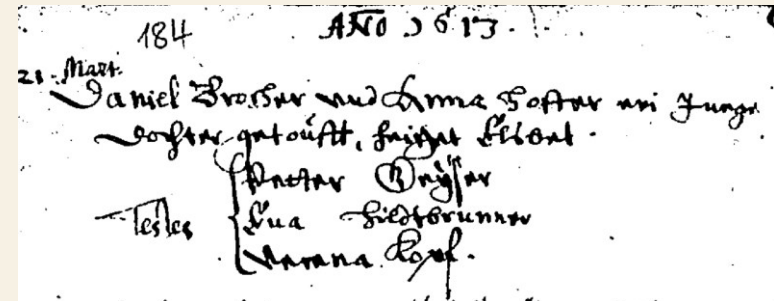 184 AÑO 1613.
21. Mart.
Daniel Brocher und Anna Hofter ein Junge
dochter getoufft, heisset Elsbet.
Petter Geÿser
Testes Eua Hiltbrunner
Verena Kopf.